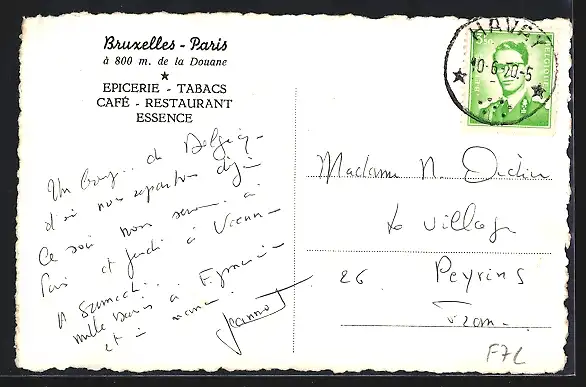 Bruxelles - Paris
à 800 m. de la Douane
EPICERIE - TABACS
CAFÉ - RESTAURANT
ESSENCE
HAVAY
0-6 20-5
de Belgique
d'où nous repartons déjà
Ce soir nous serons à
Paris et jeudi à Vienne
A Samedi.
mille baisers à
et à
Jeannot
Madame N.
Le Village
26 Peyrins
F7L